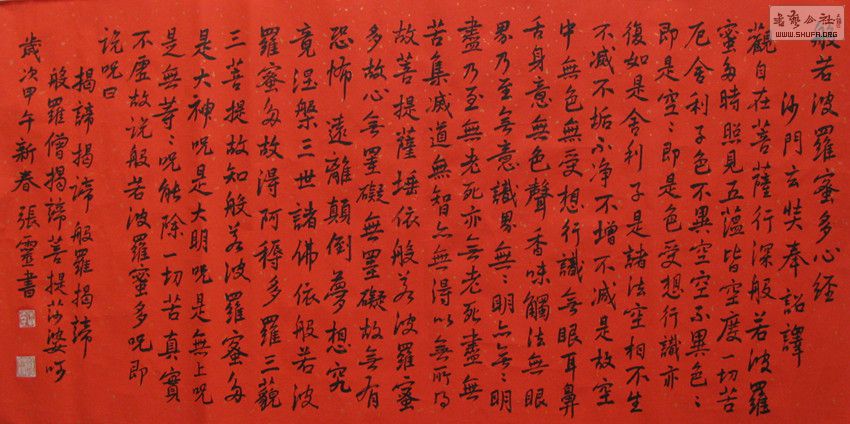 般若波羅蜜多心經
沙門玄奘奉詔譯
觀自在菩薩行深般若波羅
蜜多時照見五蕰皆空度一切苦
厄舍利子色不異空空不異色〻
即是空〻即是色受想行識亦
復如是舍利子是諸法空相不生
不滅不垢不净不增不减是故空
中無色無受想行識無眼耳鼻
舌身意無色聲香味觸法無眼
界乃至無意識界無〻明亦無〻明
盡乃至無老死亦無老死盡無
苦集滅道無智亦無得以無所得
故菩提薩埵依般若波羅蜜
多故心無罣礙無罣礙故無有
恐怖遠離顛倒夢想究
竟涅槃三世諸佛依般若波
羅蜜多故得阿耨多羅三藐
三菩提故知般若波羅蜜多
是大神呪是大明呪是無上呪
是無等〻呪能除一切苦真實
不虛故说般若波羅蜜多呪即
说呪曰
揭諦揭諦般羅揭諦
般羅僧揭諦菩提莎婆呵
歲次甲午新春張靈書
書藝公社
WWW.SHUFA.ORG